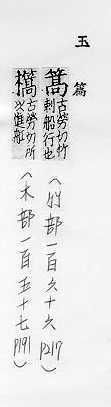 玉篇
篙 古勞切竹
刺船行也
(竹部一百六十六 P217)
檺 古勞切所
以進船
(木部一百五十七 P191)